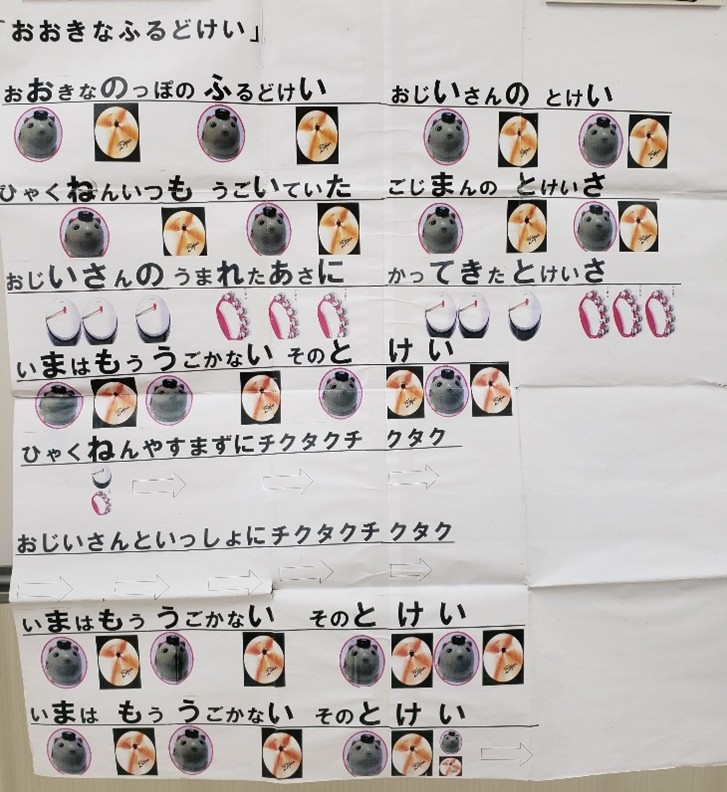 「おおきなふるどけい」
おおきなのっぽの ふるどけい おじいさんの とけい
ひゃくねんいつも うごいていた ごじまんの とけいさ
おじいさんの うまれたあさに かってきたとけいさ
いまはもう うごかない そのと けい
ひゃくねんやすまずにチクタクチ クタク
おじいさんといっしょにチクタクチ クタク
いまはもう うごかない そのと けい
いまは もう うごかない そのと けい